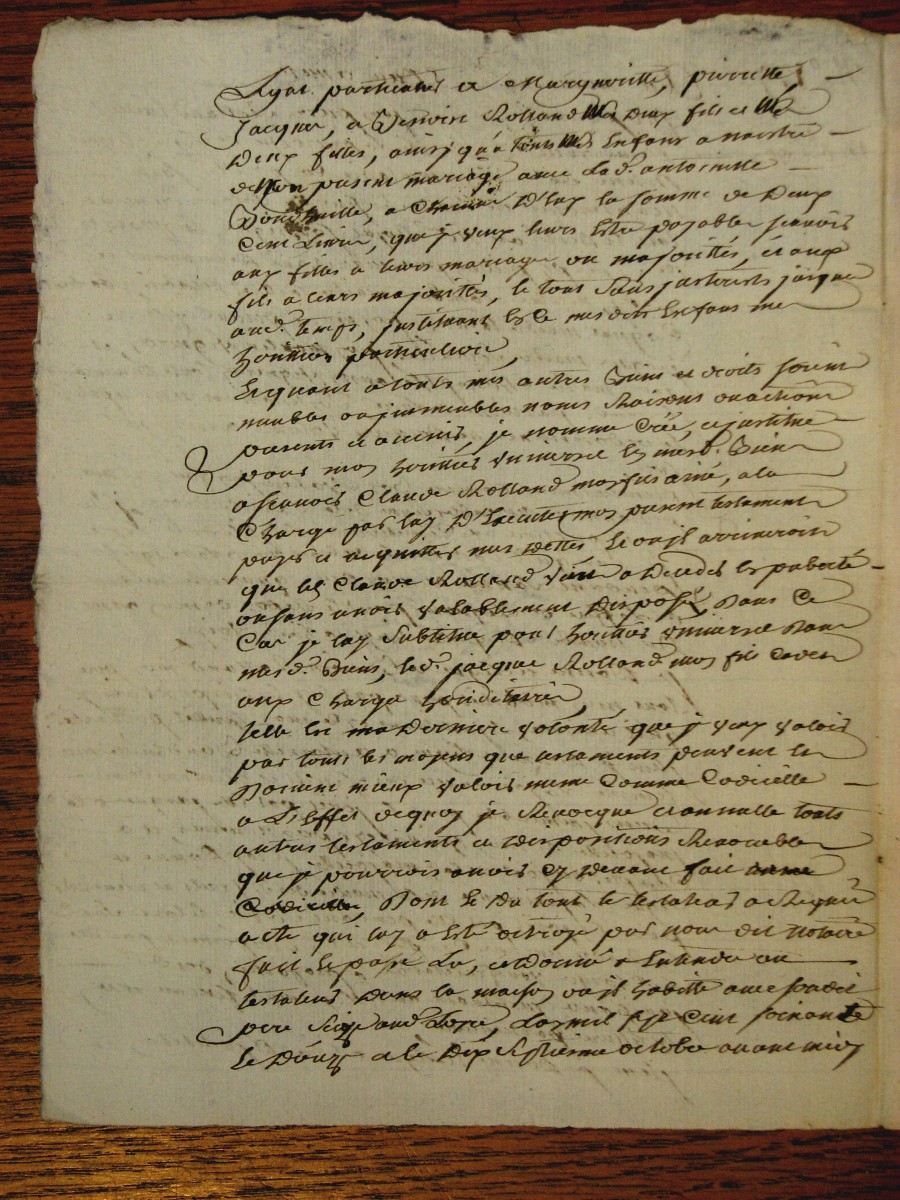 Legat particulier a Margueritte, pierrette,
Jacque, a Benoist Rolland mes deux fils et mes
deux filles, ainsy qu'a touts mes Enfans a naistre
de mon present mariage avec lad. antoinette
a Chacun d'Eux la somme de Deux
Cent Livres, que je veux leurs Estre payables scavoir
aux filles a leurs mariage ou majorités, et aux
fils a leurs majorités, le tout sans jnterests jusque
aud. temps, jnstituant les mes dits Enfans mes
heritiers particuliers,
Et quant a touts mes autres Biens et droits soient
meubles ou jmmeubles noms Raisons ou actions
presents et avenirs, je nomme Crée, et jnstitue
pour mon heritier universel les mesd. Biens
a scavoir Claude Rolland mon fils ainé, a la
Charge par luy d'Executer mon present testament
payer et acquitter mes dettes Et ou jl arriveroit
que led. Claude Rolland vient a Deceder En puberté
ou sans avoir valablement Disposé, Dans Ce
Cas je luy Substitue pour heritier universel Dans
mesd. Biens, led. jacque Rolland mon fils Cadet
aux Charges hereditaires,
telle Est ma Derniere volonté que je veux valoir
par touts les moyens que testaments peuvent Et
Doivent mieux valoir meme Comme Codicille
a L'Effet dequoy je Revocque et annulle touts
autres testaments et Dispositions Revocables
que je pourrois avoir Cy devant fait
Codicille, Dont Et Du tout le testateur a Requis
acte qui luy a Esté octroyé par nous dit notaire
fait Et passé Lu, et Donné a Entendre au
testateur Dans la maison ou jl habitte avec sondit
pere Lan mil sept Cent soixante
Et Douze et le Dix Septieme octobre avant midy